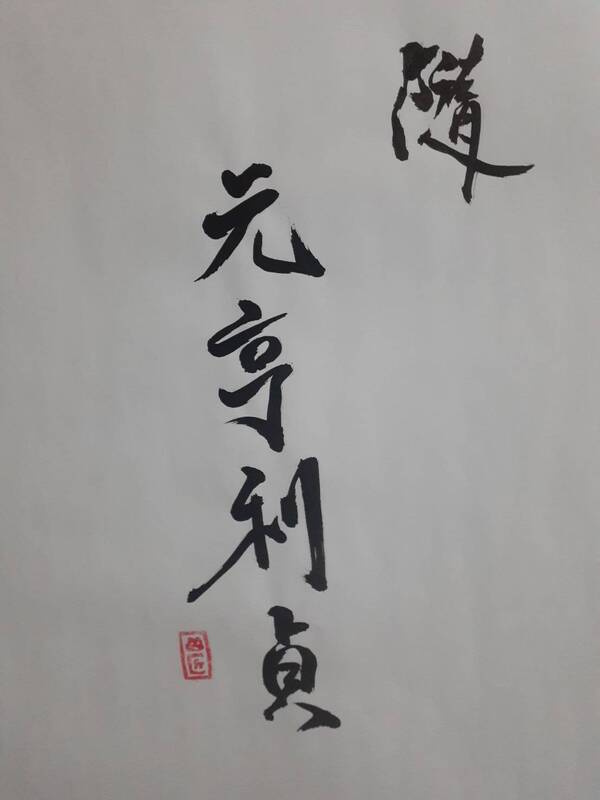 隨
元亨利貞